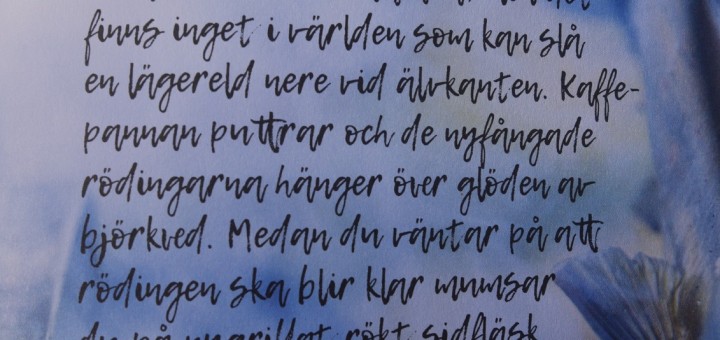 finns inget i världen som kan slå
en lägereld nere vid älvkanten. Kaffe-
pannan puttrar och de nyfångade
rödingarna hänger över glöden av
björkved. Medan du väntar på att
rödingen ska blir klar mumsar
du på ugrillat rökt sidfläsk